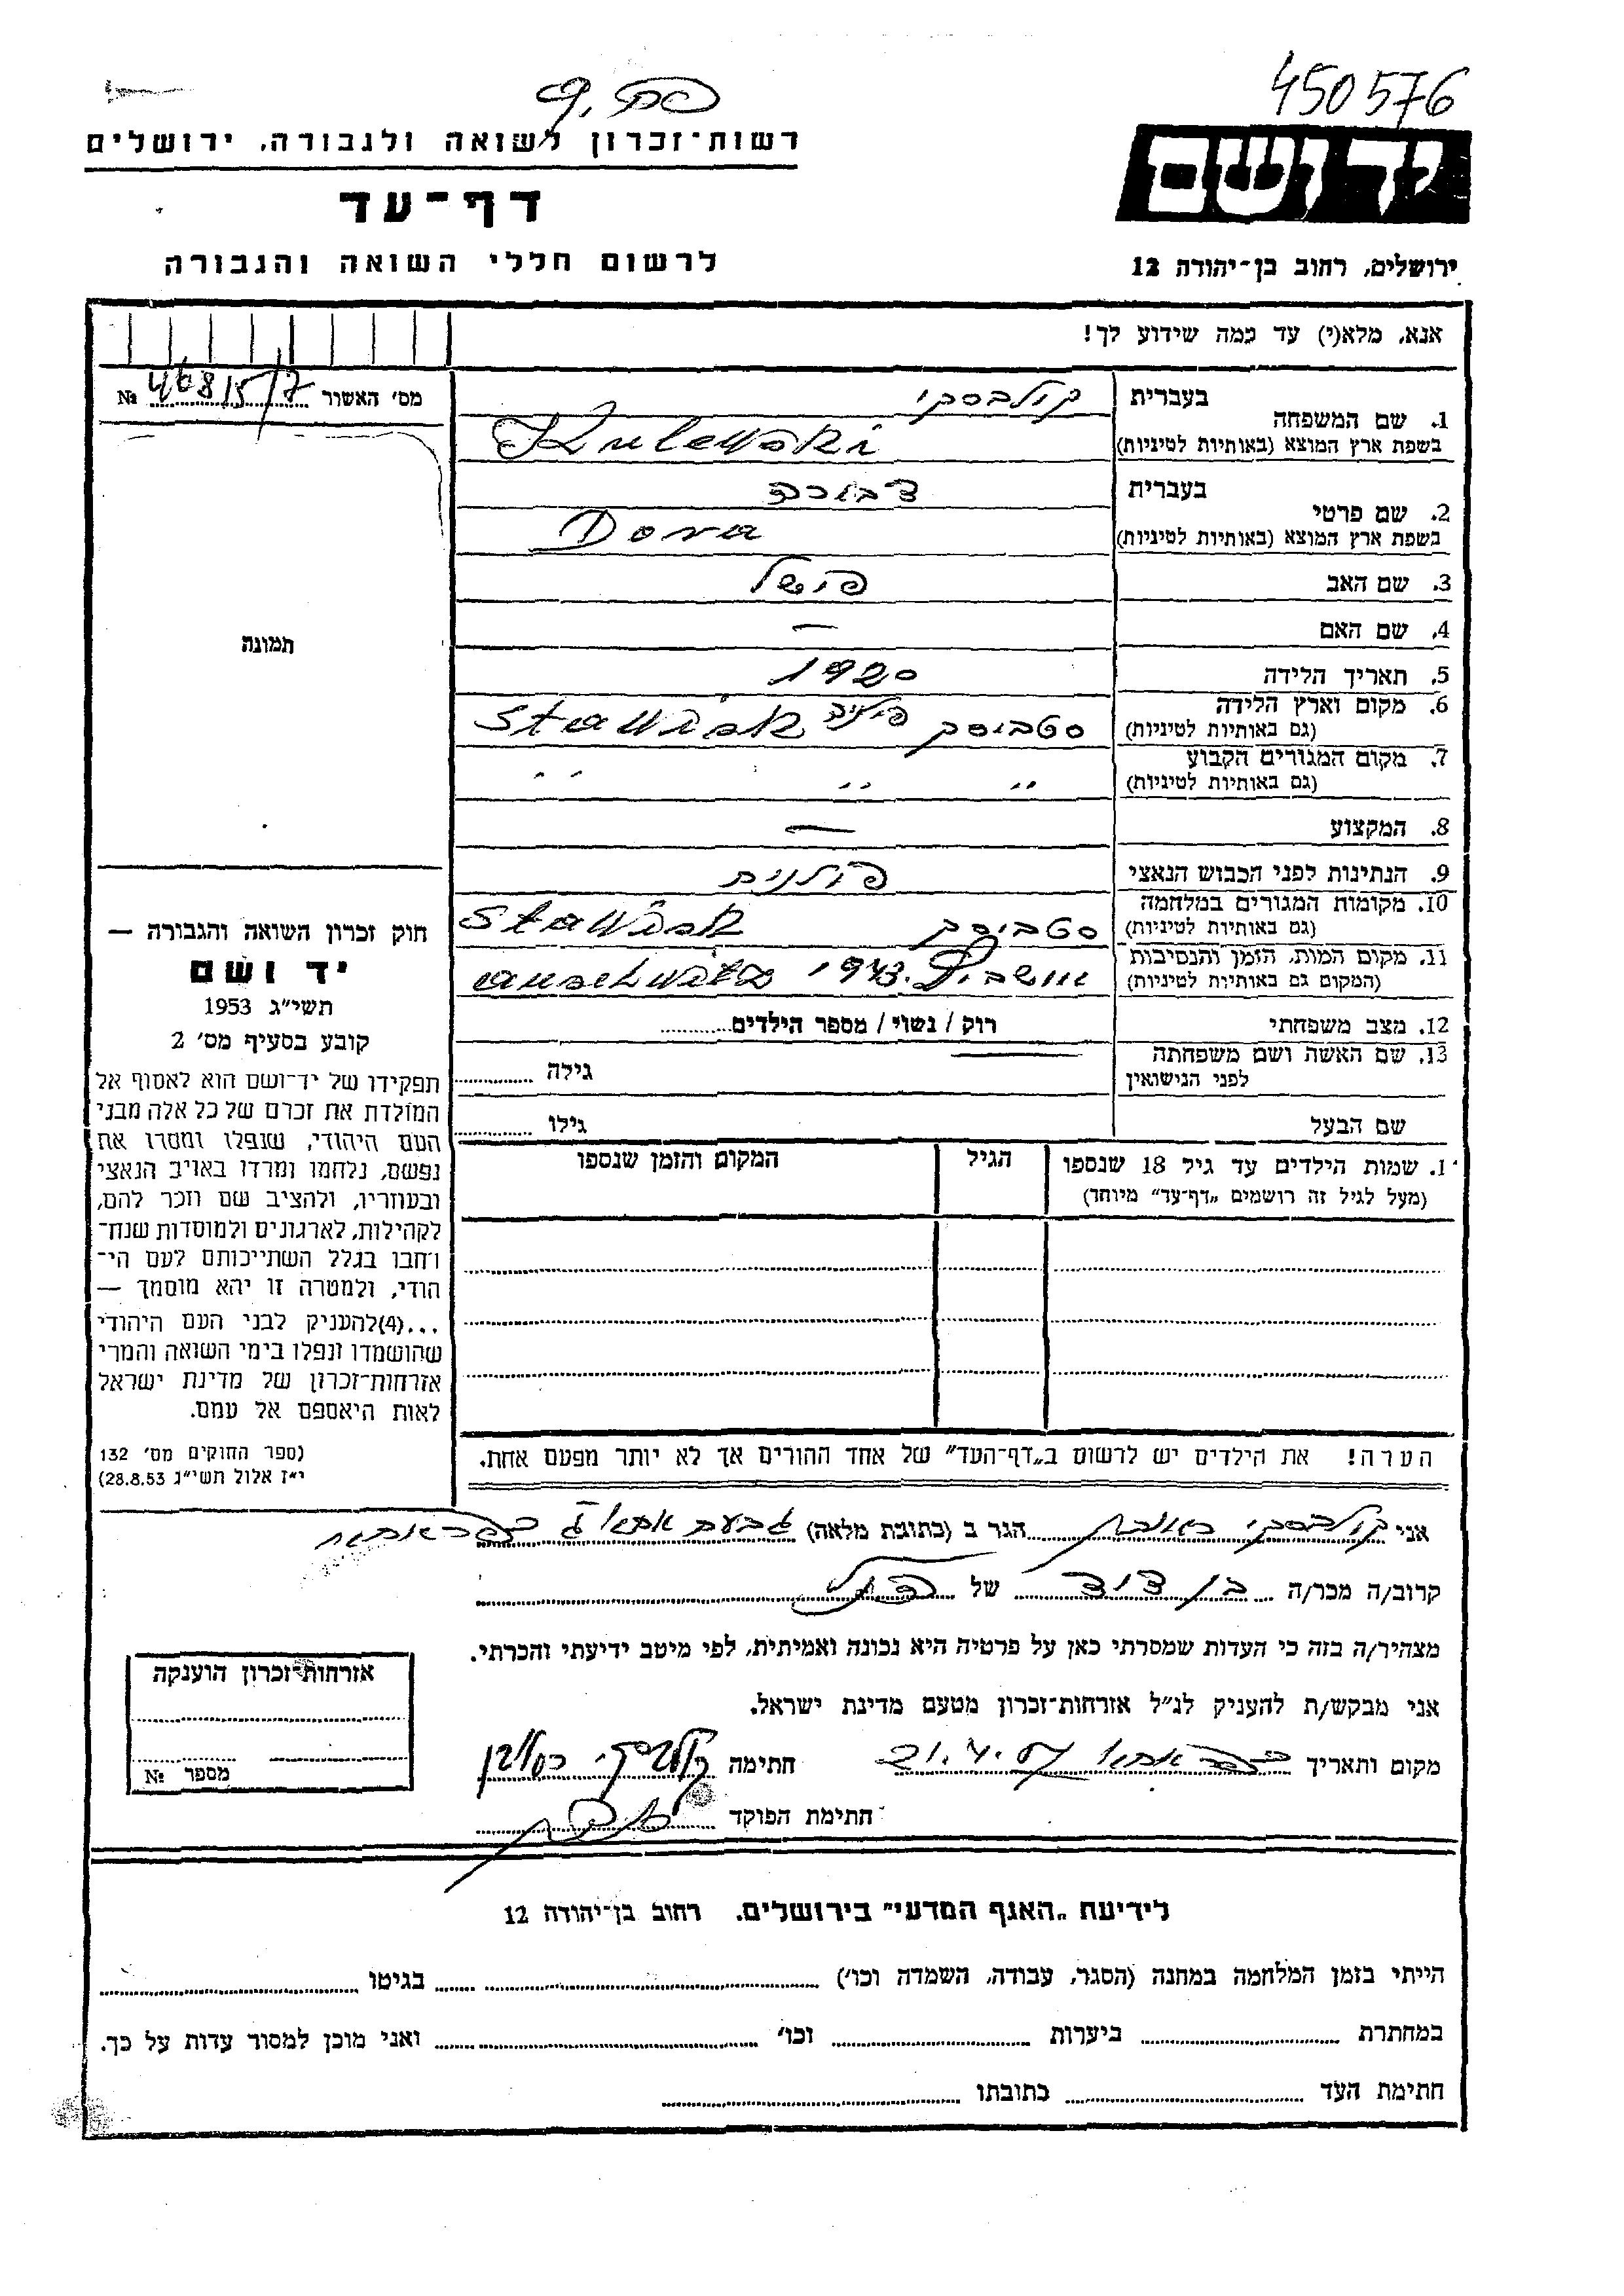 450576
יד ושם
ירושלים, רחוב בן־יהודה 12
רשות־זכרון לשואה ולגבורה, ירושלים
דף־עד
לרשום חללי השואה והגבורה
אנא, מלא(י) עד כמה שידוע לך!
מס׳ האשור №
1. שם המשפחה בעברית קולבסקי
בשפת ארץ המוצא (באותיות לטיניות) Kulewski
2. שם פרטי בעברית דבורה
בשפת ארץ המוצא (באותיות לטיניות) Dora
3. שם האב פישל
4. שם האם —
5. תאריך הלידה 1920
6. מקום וארץ הלידה סטביסק פולין Stawisk
(גם באותיות לטיניות)
7. מקום המגורים הקבוע ,, ,, ,,
(גם באותיות לטיניות)
8. המקצוע —
9. הנתינות לפני הכבוש הנאצי פולנית
10. מקומות המגורים במלחמה סטביסק Stawisk
(גם באותיות לטיניות)
11. מקום המות, הזמן והנסיבות אושביץ 1943. auschwitz
(המקום גם באותיות לטיניות)
12. מצב משפחתי רוק / נשוי / מספר הילדים
13. שם האשה ושם משפחתה גילה
לפני הנישואין
שם הבעל גילו
1. שמות הילדים עד גיל 18 שנספו הגיל המקום והזמן שנספו
(מעל לגיל זה רושמים „דף־עד״ מיוחד)
הערה! את הילדים יש לרשום ב„דף־העד״ של אחד ההורים אך לא יותר מפעם אחת.
תמונה
חוק זכרון השואה והגבורה —
יד ושם
תשי״ג 1953
קובע בסעיף מס׳ 2
תפקידו של יד־ושם הוא לאסוף אל
המולדת את זכרם של כל אלה מבני
העם היהודי, שנפלו ומסרו את
נפשם, נלחמו ומרדו באויב הנאצי
ובעוזריו, ולהציב שם וזכר להם,
לקהילות, לארגונים ולמוסדות שנח־
רחבו בגלל השתייכותם לעם הי־
הודי, ולמטרה זו יהא מוסמך —
...(4)להעניק לבני העם היהודי
שהושמדו ונפלו בימי השואה והמרי
אזרחות־זכרון של מדינת ישראל
לאות היאספם אל עמם.
(ספר החוקים מס׳ 132
י״ז אלול תשי״ג 28.8.53)
אני קולבסקי ראובן הגר ב (כתובת מלאה) גבעת אתא
קרוב/ה מכר/ה בן דוד של
מצהיר/ה בזה כי העדות שמסרתי כאן על פרטיה היא נכונה ואמיתית, לפי מיטב ידיעתי והכרתי.
אני מבקש/ת להעניק לנ״ל אזרחות־זכרון מטעם מדינת ישראל.
מקום ותאריך כפר אתא חתימה קולבסקי ראובן
חתימת הפוקד
אזרחות־זכרון הוענקה
מספר №
לידיעת „האגף המדעי״ בירושלים. רחוב בן־יהודה 12
הייתי בזמן המלחמה במחנה (הסגר, עבודה, השמדה וכו׳) בגיטו
במחתרת ביערות וכו׳ ואני מוכן למסור עדות על כך.
חתימת העד כתובתו